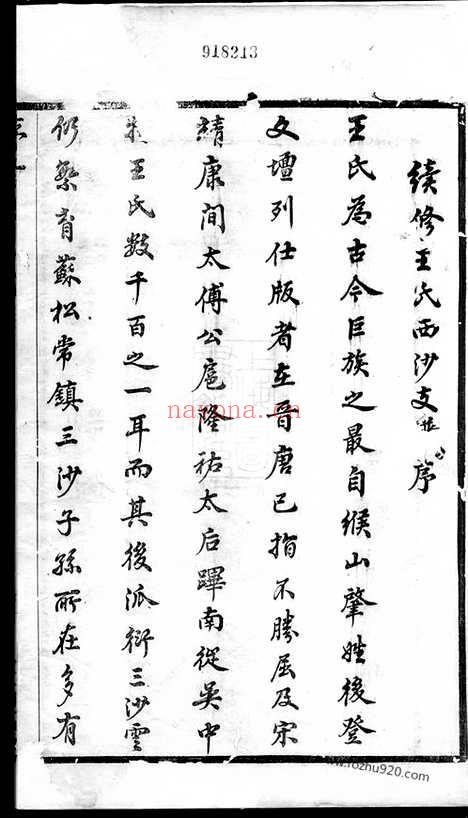 918213
續修王氏西沙支序
王氏為古今巨族之最自緱山肇姓後登
文壇列仕版者在晉唐已指不勝屈及宋
靖康間太傅公扈隆祐太后蹕南從吳中
王氏數千百之一耳而其後派衍三沙雲
仍繁育蘇松常鎮三沙子孫所在多有
nayona.cn
www.rozhu920.com